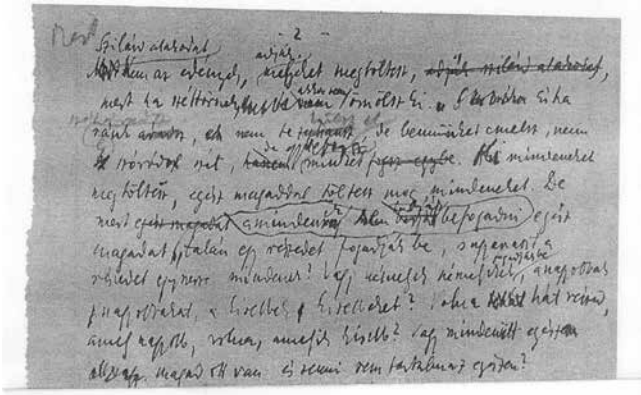 2
Mert
Szilárd alakodat
nem az edények, adják, melyeket megtöltesz, adják szilárd alakodat,
mert ha széttörnek, akkor sem ömölsz ki. S ha ki
ránk áradsz, nem te, de bennünket emelsz, nem
szóródol szét, hanem minket egybe. Ki mindeneket
megtöltesz, egész magaddal töltesz meg mindeneket. De
mert egész magadat a mindenség nem tudja befogadni egész
magadat, talán egy részedet fogadják be, s ugyanazt a
részedet egyszerre mindenek? Vagy némelyek némelyiket, fogadják be a nagyobbak
nagyobbakat, a kisebbek kisebbeket? Volna hát részed,
amely nagyobb, volna, amelyik kisebb? Vagy mindenütt egészen
magad ott van és semmi sem tartalmaz egészen?